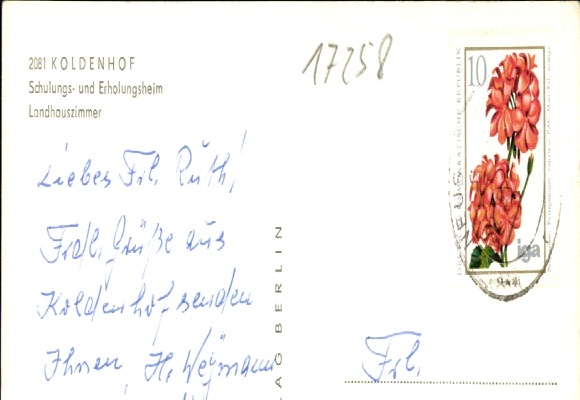 2081 KOLDENHOF
Schulungs- und Erholungsheim
Landhauszimmer
17258
Liebes Frl. Ruth!
Frdl. Grüße aus
Koldenhof senden
Ihnen, H. Weymann
AG BERLIN
10
iga
Frl.